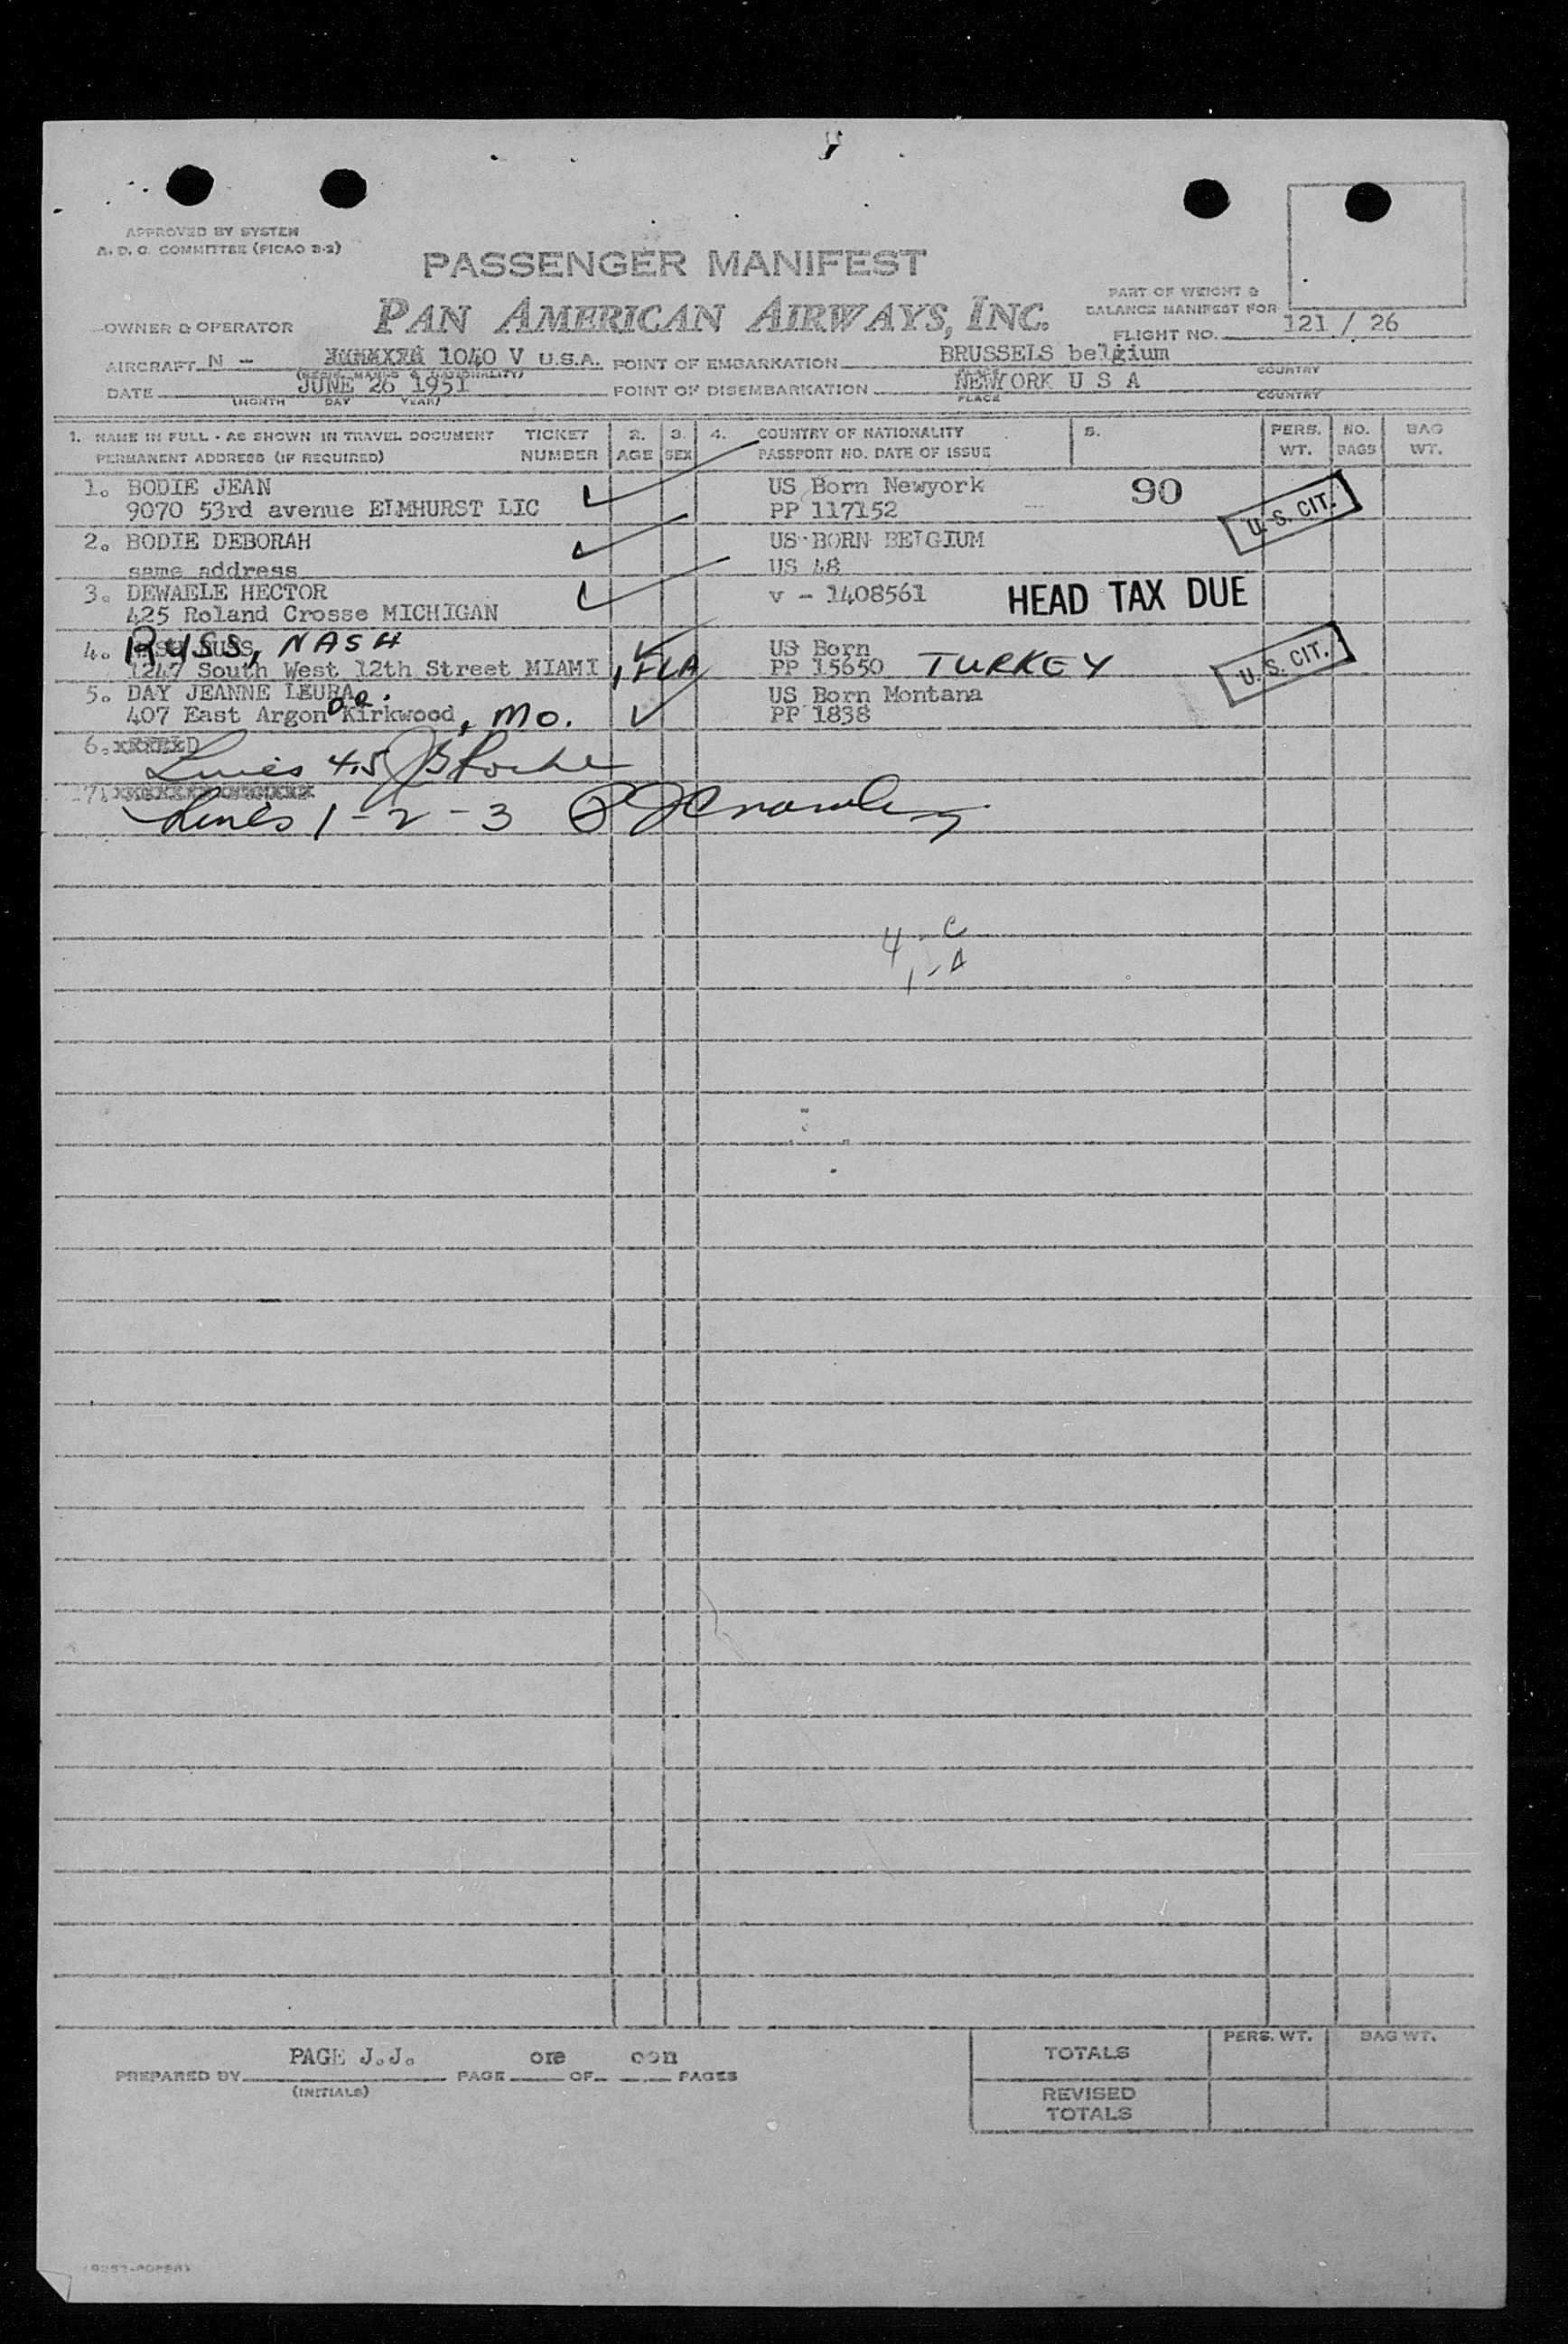 APPROVED BY SYSTEM
A. D. C. COMMITTEE (PICAO 2-2)
PASSENGER MANIFEST
PAN AMERICAN AIRWAYS, INC.
OWNER & OPERATOR
PART OF WEIGHT &
BALANCE MANIFEST FOR
FLIGHT NO. 121 / 26
AIRCRAFT N - 1040 V U.S.A. POINT OF EMBARKATION BRUSSELS belgium
COUNTRY
DATE JUNE 26 1951 POINT OF DISEMBARKATION NEWYORK U S A
(MONTH DAY YEAR) PLACE COUNTRY
1. NAME IN FULL - AS SHOWN IN TRAVEL DOCUMENT TICKET 2. 3. 4. COUNTRY OF NATIONALITY 5. PERS. NO. BAG
PERMANENT ADDRESS (IF REQUIRED) NUMBER AGE SEX PASSPORT NO. DATE OF ISSUE WT. BAGS WT.
1. BODIE JEAN US Born Newyork 90 U. S. CIT.
9070 53rd avenue ELMHURST LIC PP 117152
2. BODIE DEBORAH US BORN BELGIUM
same address US 48
3. DEWAELE HECTOR v - 1408561 HEAD TAX DUE
425 Roland Crosse MICHIGAN
4. RUSS, NASH US Born
1247 South West 12th Street MIAMI, FLA PP 15650 TURKEY U. S. CIT.
5. DAY JEANNE LEURA US Born Montana
407 East Argonne Kirkwood, Mo. PP 1838
6.
Lines 4.5
7.
Lines 1-2-3
4 - C
1 - A
PREPARED BY PAGE J.J. PAGE one OF PAGES
(INITIALS)
PERS. WT. BAG WT.
TOTALS
REVISED
TOTALS